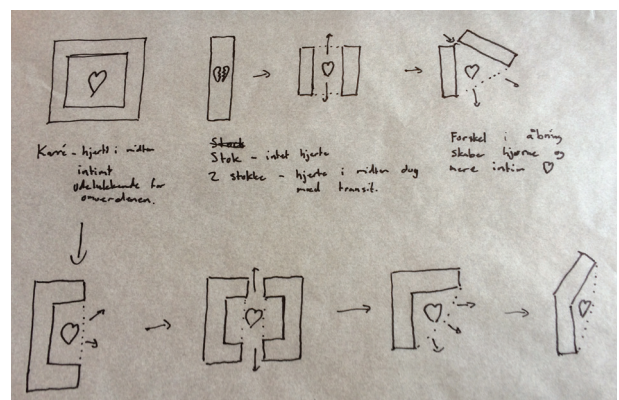 Karré - hjerte i midten
intimt
udelukkende for
omverdenen.
Stock
Stok - intet hjerte
2 stokke - hjerte i midten dog
med transit.
Forskel i åbning
skaber hjørne og
mere intim